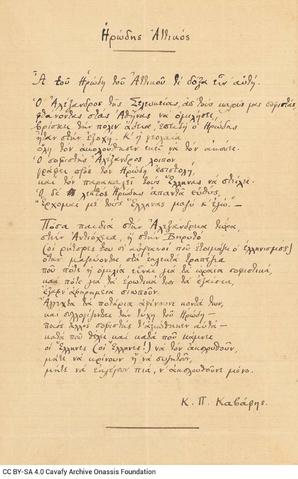 Ἡρώδης Ἀττικός
Ἆ τοῦ Ἡρώδη τοῦ Ἀττικοῦ τί δόξα εἶν' αὐτή.
Ὁ Ἀλέξανδρος τῆς Σελευκείας, ἀπ' τοὺς καλούς μας σοφιστάς,
φθάνοντας στὰς Ἀθήνας νὰ ὁμιλήσει,
βρίσκει τὴν πόλιν ἄδεια, ἐπειδὴ ὁ Ἡρώδης
ἦταν στὴν ἐξοχή. Κ' ἡ νεολαία
ὅλη τὸν ἀκολούθησεν ἐκεῖ νὰ τὸν ἀκούει.
Ὁ σοφιστὴς Ἀλέξανδρος λοιπὸν
γράφει πρὸς τὸν Ἡρώδη ἐπιστολή,
καὶ τὸν παρακαλεῖ τοὺς Ἕλληνας νὰ στείλει.
Ὁ δὲ λεπτὸς Ἡρώδης ἀπαντᾶ εὐθύς,
"Ἔρχομαι μὲ τοὺς Ἕλληνας μαζὺ κ' ἐγώ."
Πόσα παιδιὰ στὴν Ἀλεξάνδρεια τώρα,
στὴν Ἀντιόχεια, ἢ στὴν Βηρυτὸ
(οἱ ρήτορές του οἱ αὐριανοὶ ποὺ ἑτοιμάζει ὁ ἑλληνισμός)
ὅταν μαζεύονται στὰ ἐκλεκτὰ τραπέζια
ποὺ πότε ἡ ὁμιλία εἶναι γιὰ τὰ ὡραῖα σοφιστικά,
καὶ πότε γιὰ τὰ ἐρωτικά των τὰ ἐξαίσια,
ἔξαφν' ἀφηρημένα σιωποῦν.
Ἄγγιχτα τὰ ποτήρια ἀφίνουνε κοντά των,
καὶ συλλογίζονται τὴν τύχη τοῦ Ἡρώδη—
ποιὸς ἄλλος σοφιστὴς τ' ἀξιώθηκεν αὐτά;—
κατὰ ποὺ θέλει καὶ κατὰ ποὺ κάμνει
οἱ Ἕλληνες (οἱ Ἕλληνες!) νὰ τὸν ἀκολουθοῦν,
μήτε νὰ κρίνουν ἢ νὰ συζητοῦν,
μήτε νὰ ἐκλέγουν πιά, ν' ἀκολουθοῦνε μόνο.
Κ. Π. Καβάφης.
CC BY-SA 4.0 Cavafy Archive Onassis Foundation